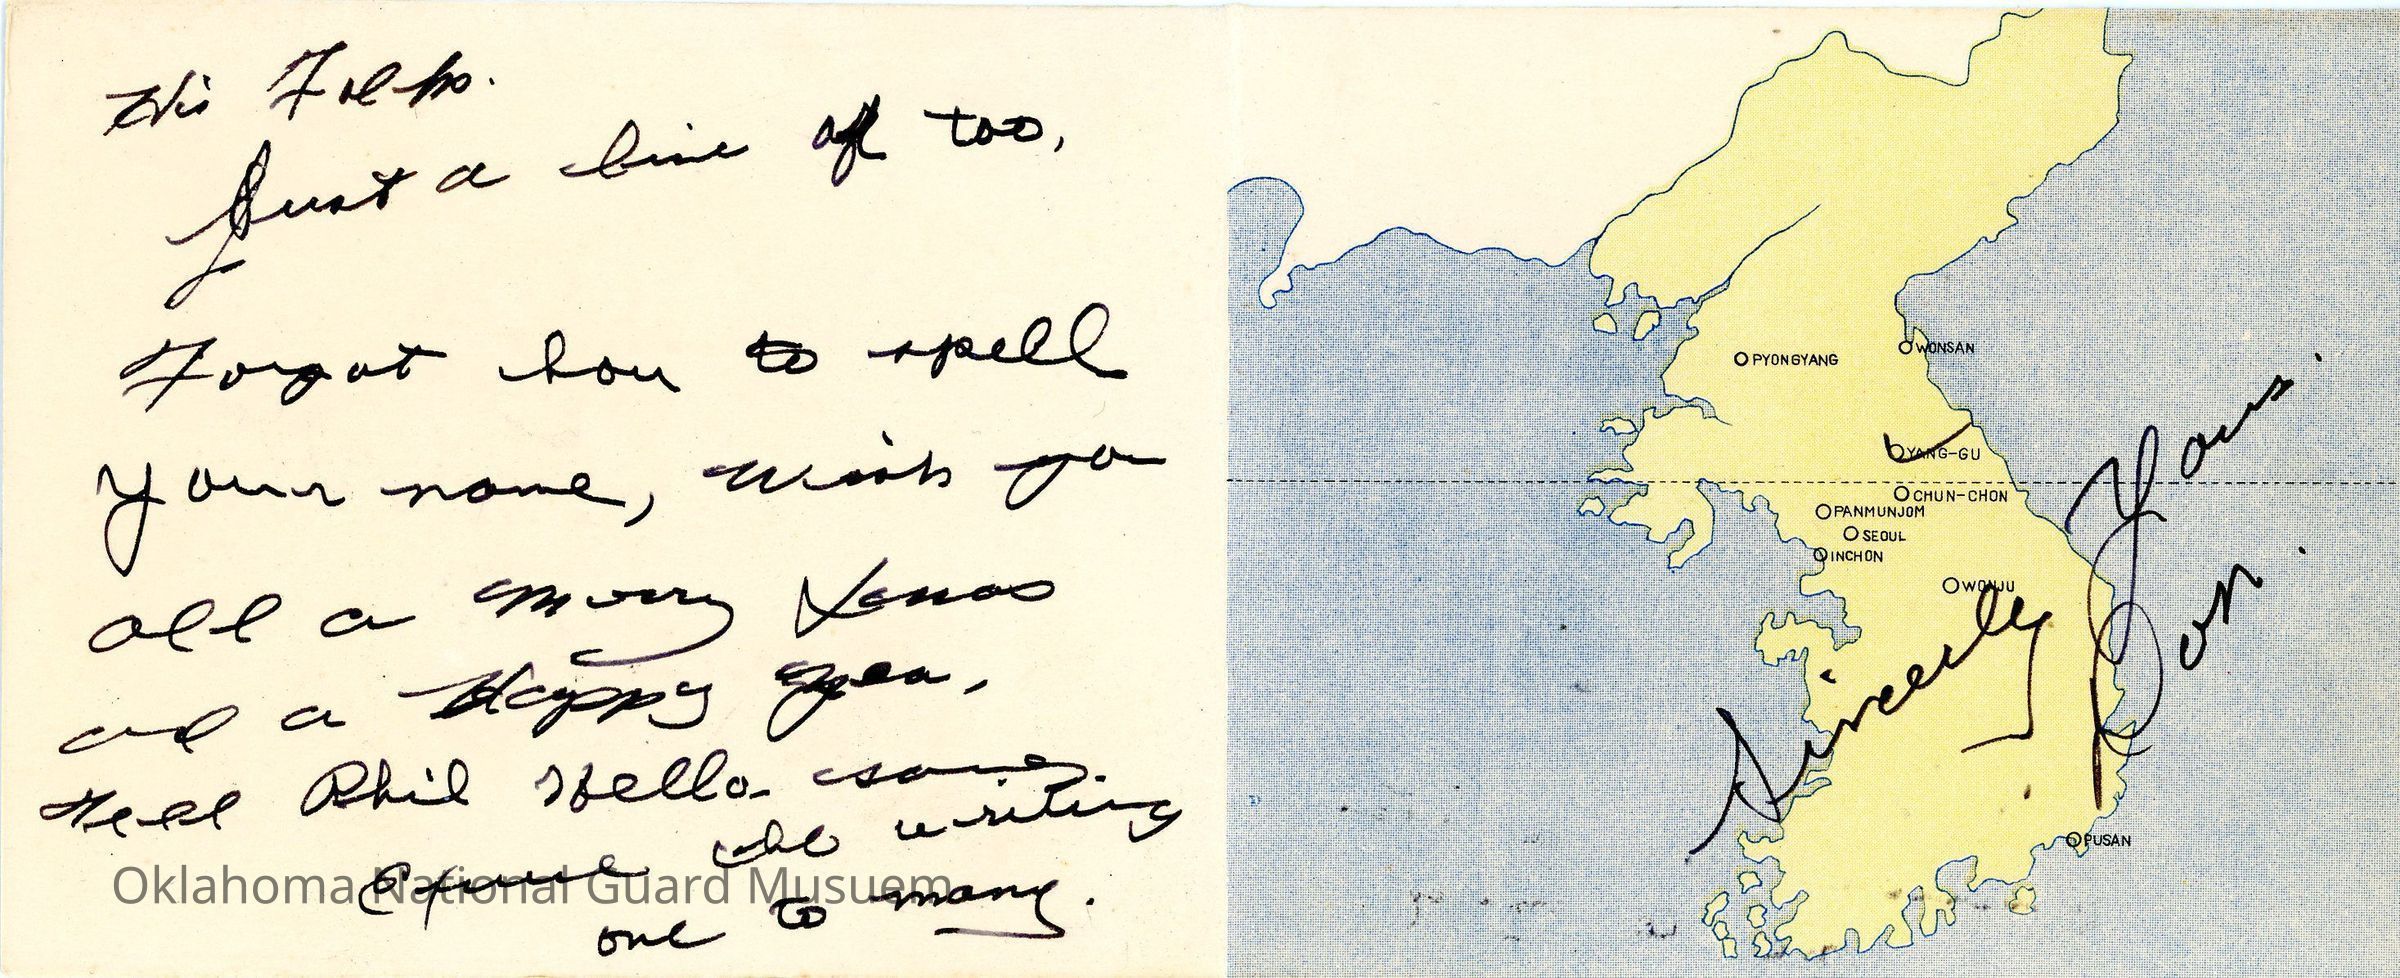 Hi Folks.
Just a line or too,
Forgot how to spell
your name, Wish you
all a Merry Xmas
and a Happy year,
tell Phil Hello.
the writing
one to many.
Oklahoma National Guard Musuem
WONSAN
PYONGYANG
YANG-GU
CHUN-CHON
PANMUNJOM
SEOUL
INCHON
WONJU
PUSAN
Sincerly Yours.
Don.